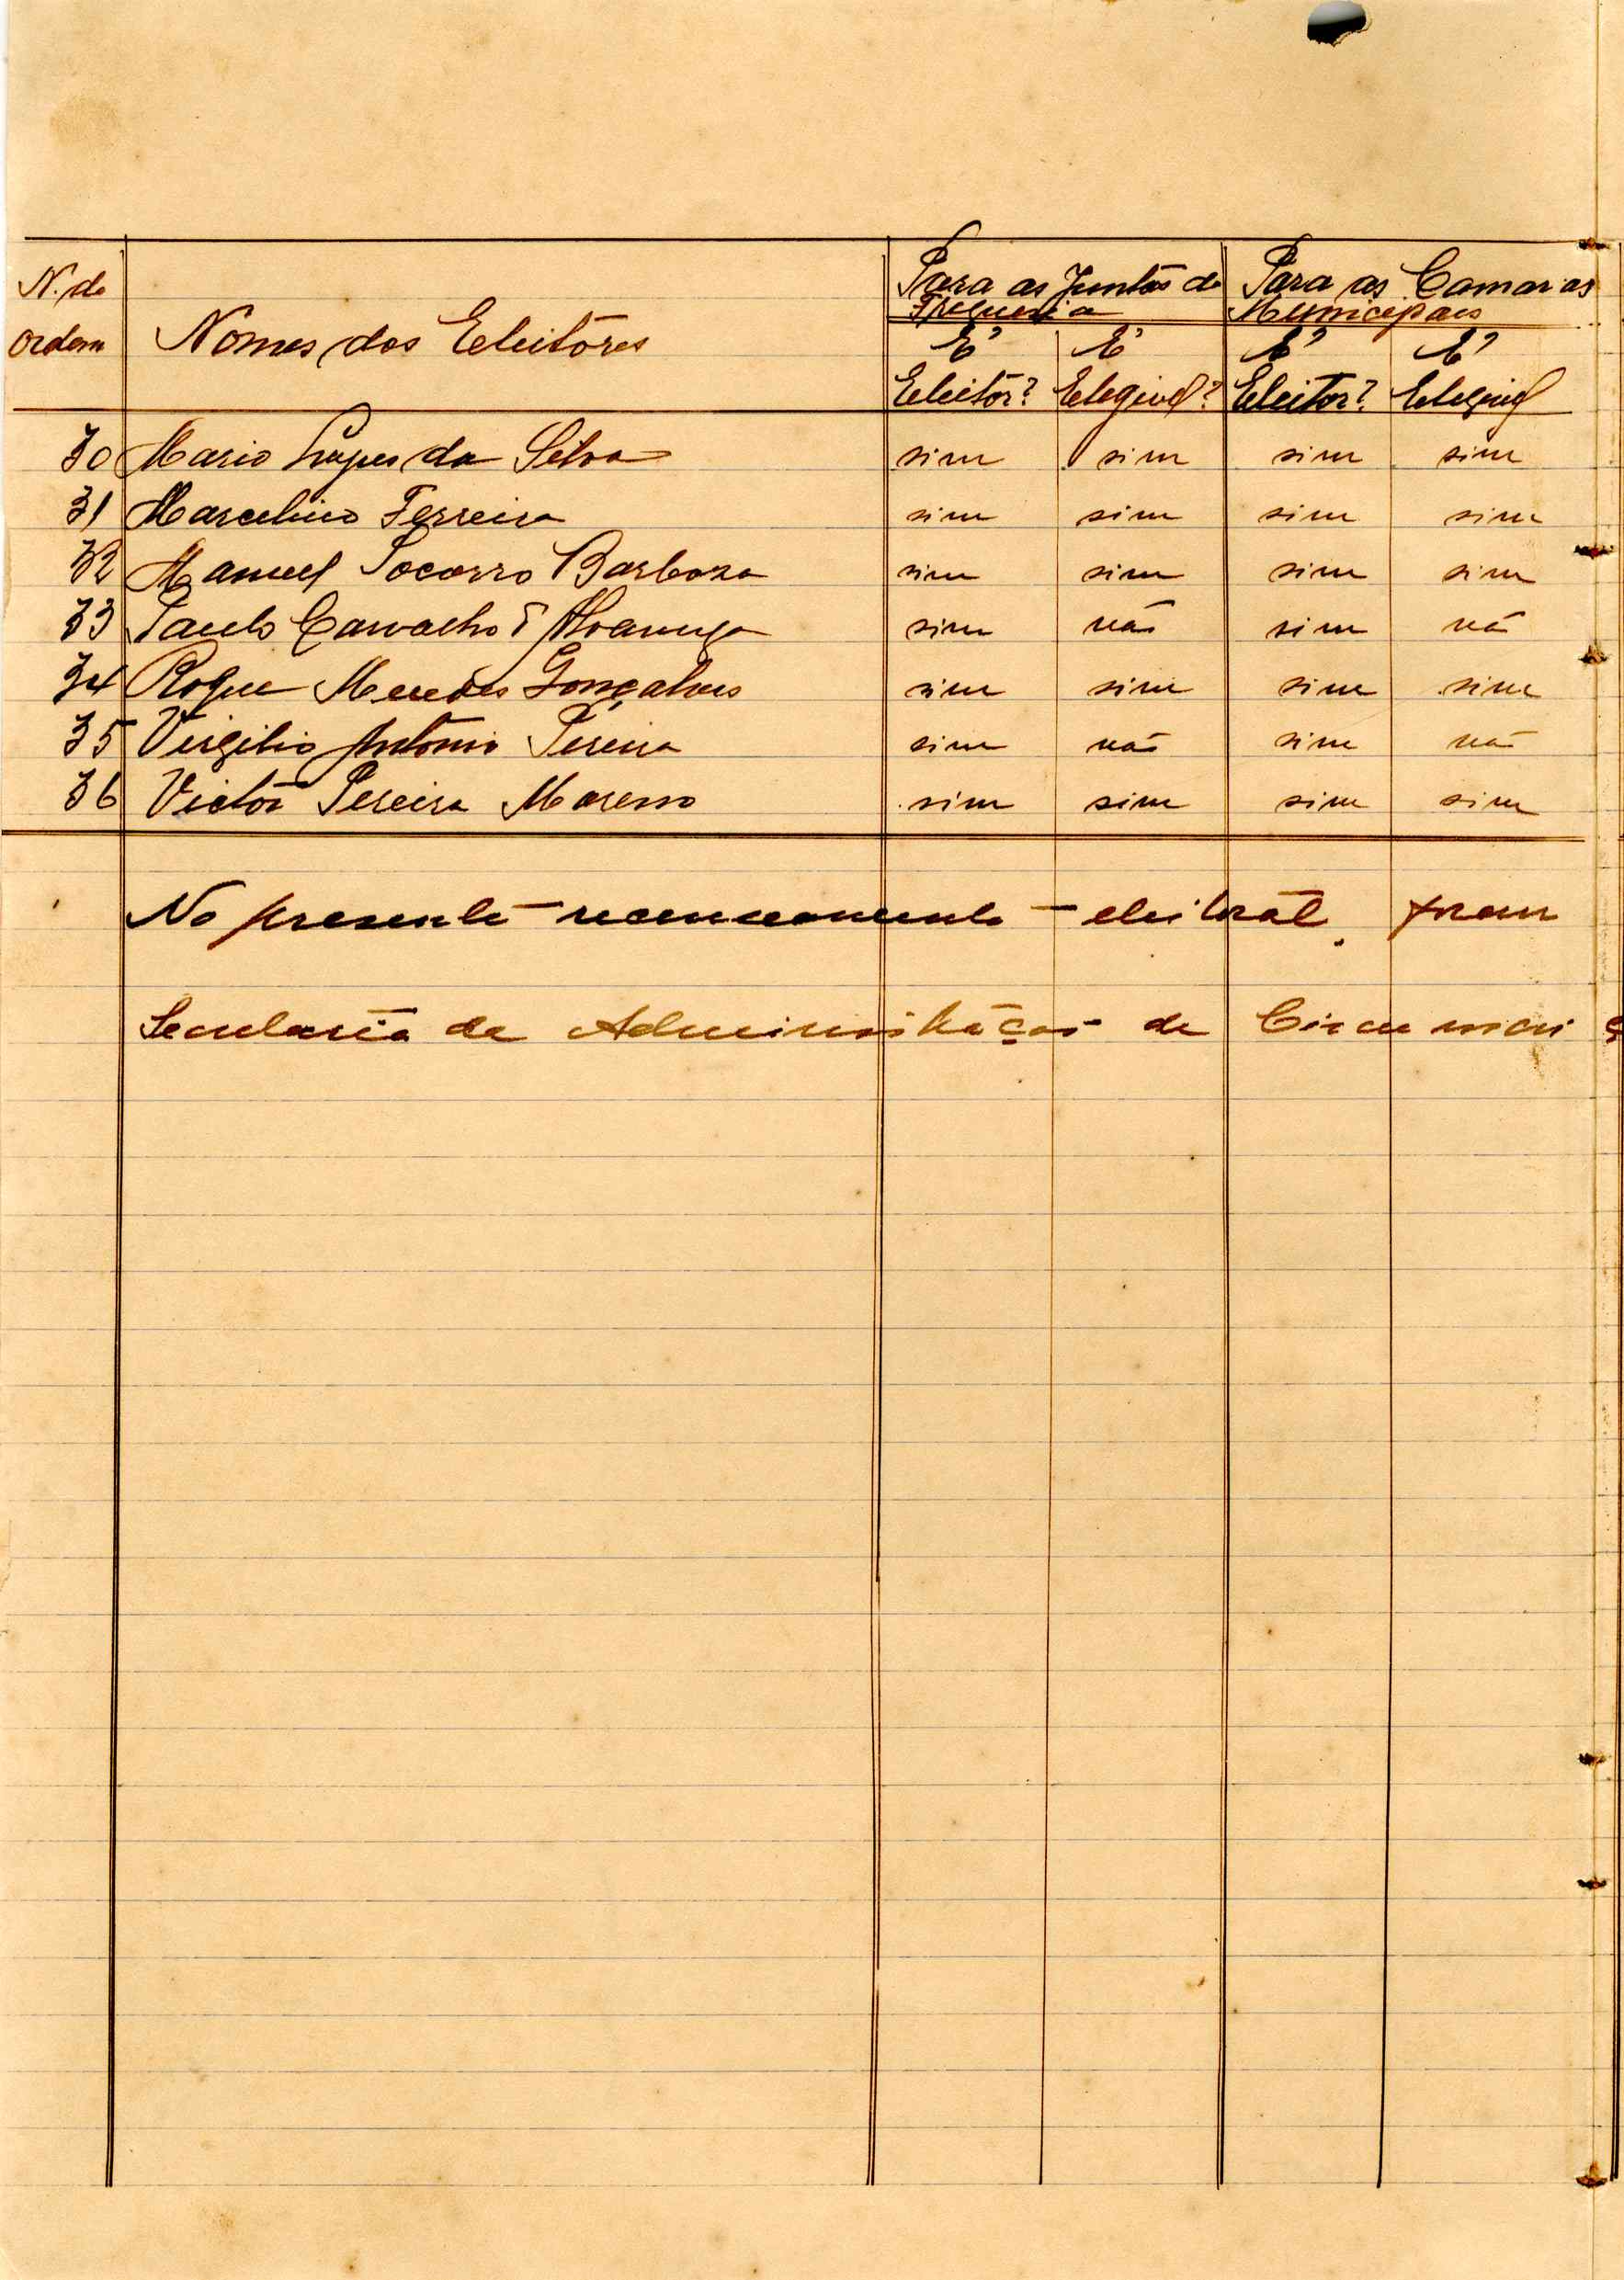 N. de Ordem Nomes dos Eleitōres Para as Juntas de Freguesia Para as Camaras Municipaes
E' Eleitōr? E' Elegivel? E' Eleitor? E' Elegivel
30 Mario Lopes da Silva sim sim sim sim
31 Marcelino Ferreira sim sim sim sim
32 Manuel Socorro Barboza sim sim sim sim
33 Paulo Carvalho d'Alvarenga sim não sim não
34 Roque Mendes Gonçalves sim sim sim sim
35 Virgilio António Pereira sim não sim não
36 Victōr Pereira Moreno sim sim sim sim
No presente recenceamento eleitorāl, foram
Secretaria da Administração de Circunscriç